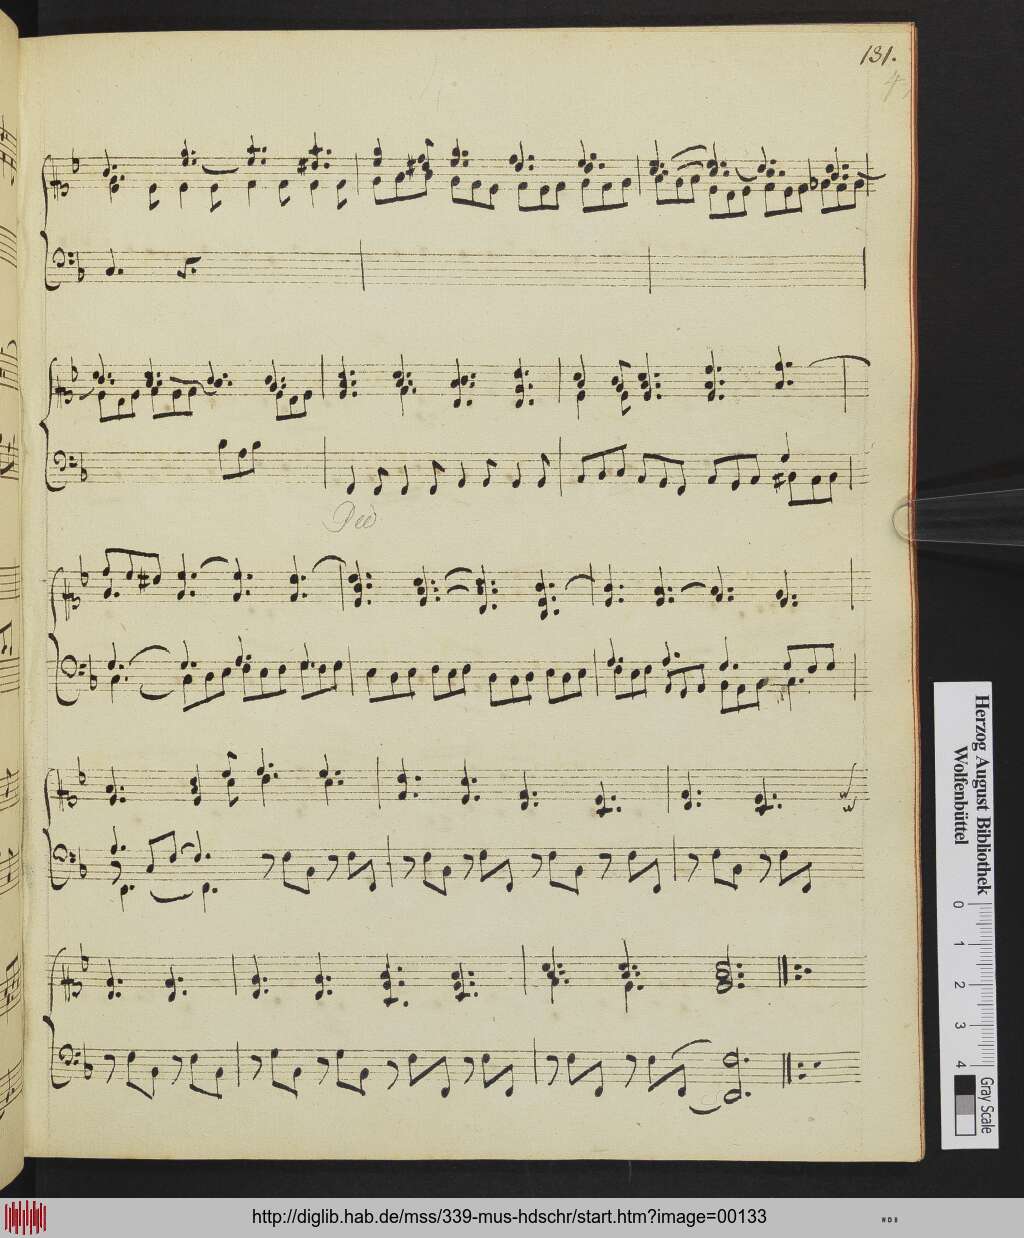 131.
4
Ped
Herzog August Bibliothek
Wolfenbüttel
0 1 2 3 4
Gray Scale
http://diglib.hab.de/mss/339-mus-hdschr/start.htm?image=00133
WDB